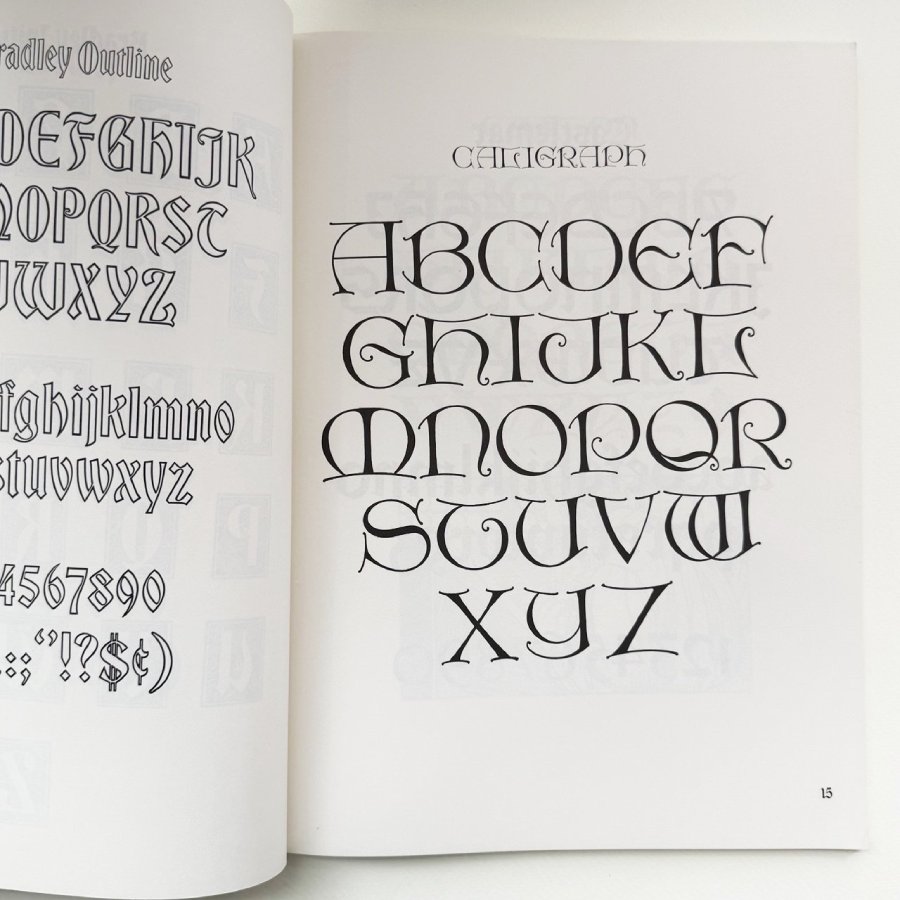 radley Outline
DEFGHIJK
NOPQRST
WXYZ
fghijklmno
stuvwxyz
4567890
:;“!?$¢)
CALIGRAPH
ABCDEF
GHIJKL
MNOPQR
STUVW
XYZ
15